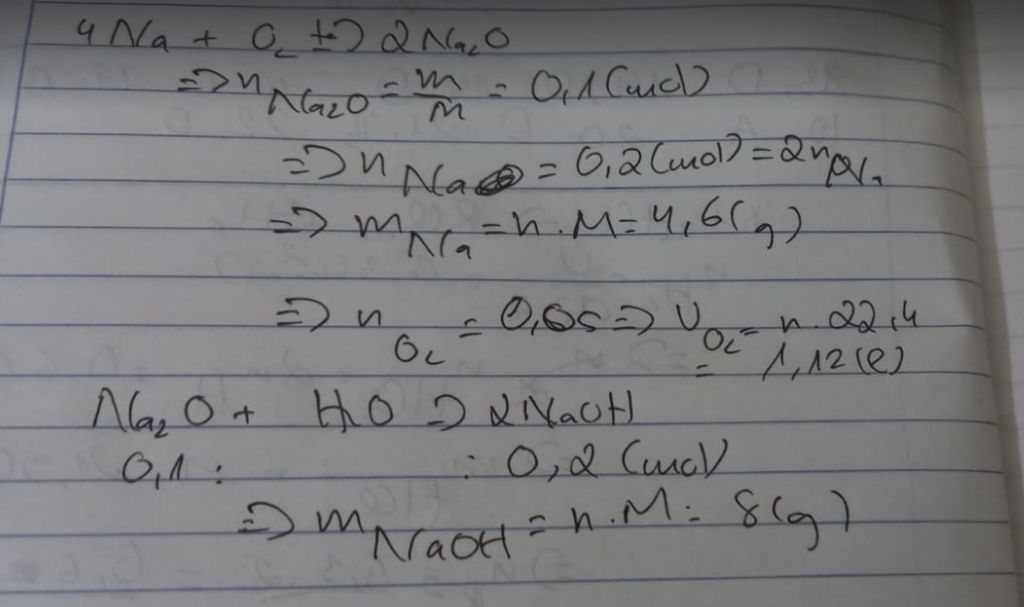 4Na + O₂ t=> 2Na₂O
=> n Na₂O = m/M = 0,1 (mol)
=> n Na = 0,2 (mol) = 2n
=> m Na = n . M = 4,6 (g)
=> n O₂ = 0,05 => V O₂ = n . 22,4
= 1,12 (l)
Na₂O + H₂O => 2NaOH
0,1 : : 0,2 (mol)
=> m NaOH = n . M = 8 (g)